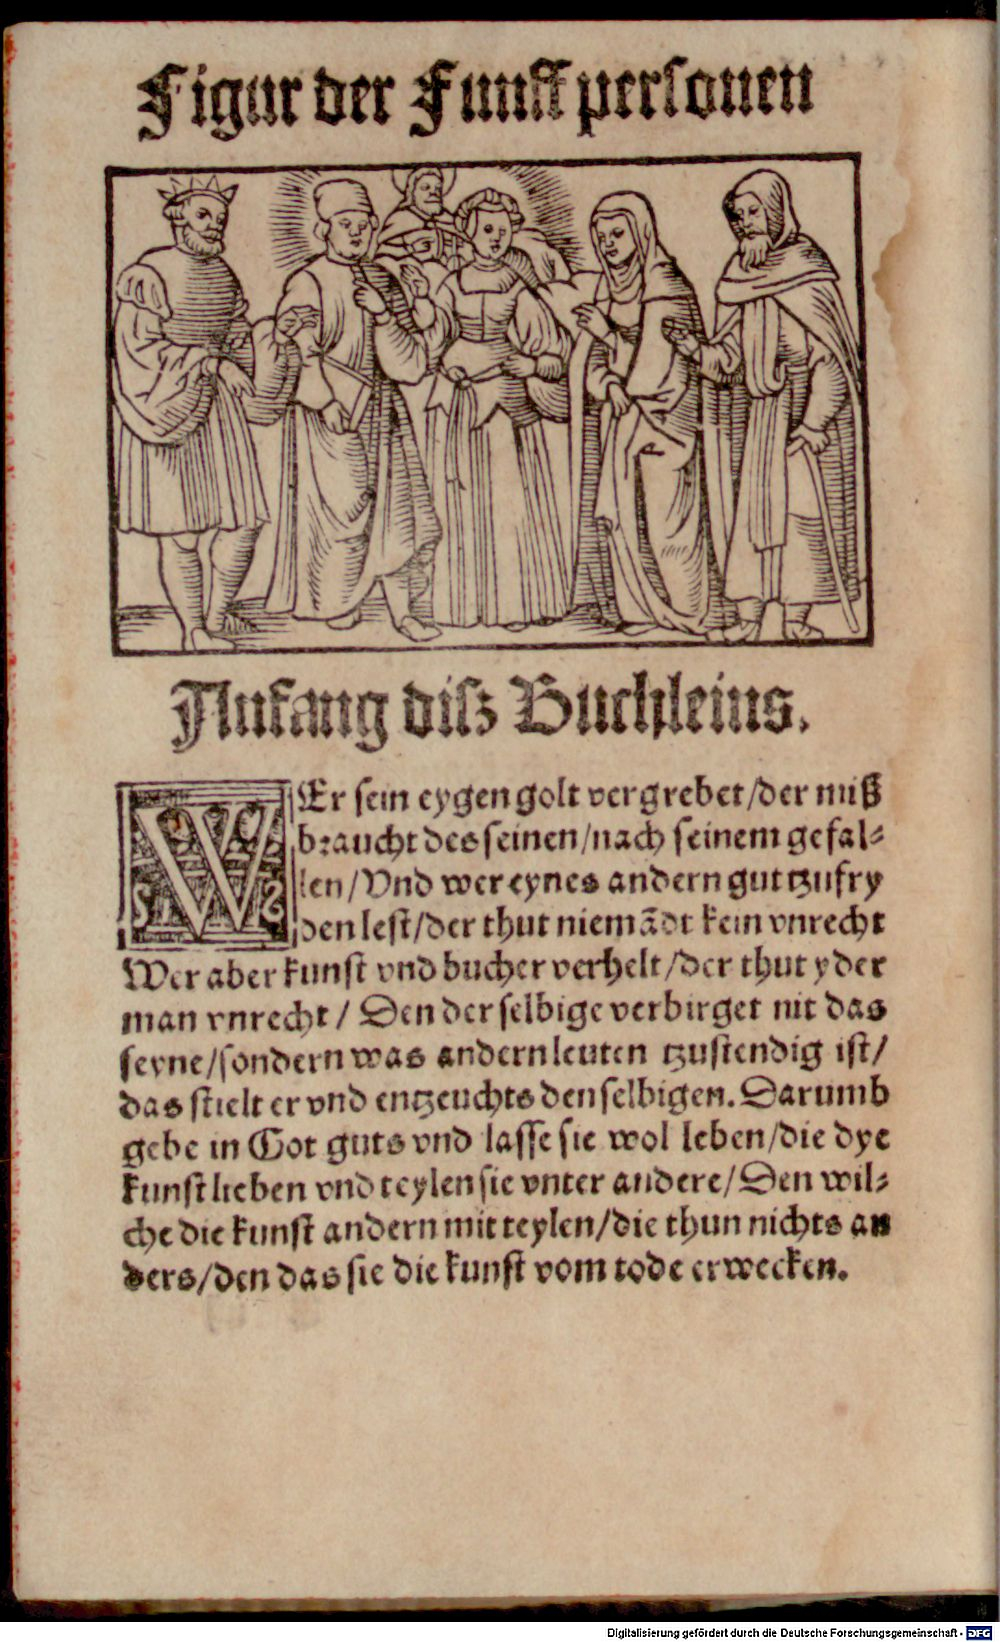 Figur der Funff personen
Anfang disz Buchleins.
WEr sein eygen golt vergrebet/der miß
braucht des seinen/nach seinem gefal⸗
len/Vnd wer eynes andern gut tzufry
den lest/der thut niemãdt kein vnrecht
Wer aber kunst vnd bucher verhelt/der thut yder
man vnrecht/ Den der selbige verbirget nit das
seyne/sondern was andern leuten tzustendig ist/
das stielt er vnd entzeuchts denselbigen. Darumb
gebe in Got guts vnd lasse sie wol leben/die dye
kunst lieben vnd teylen sie vnter andere/Den wil⸗
che die kunst andern mit teylen/die thun nichts an
ders/den das sie die kunst vom tode erwecken.
Digitalisierung gefördert durch die Deutsche Forschungsgemeinschaft - DFG